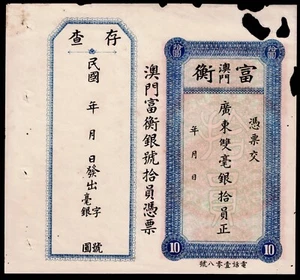 富衡
澳門
憑票交
廣東雙毫銀拾員正
年 月 日
10
10
電話壹零八號
澳門富衡銀號拾員憑票
存查
民國 年 月 日發出
毫銀 字 號
圓